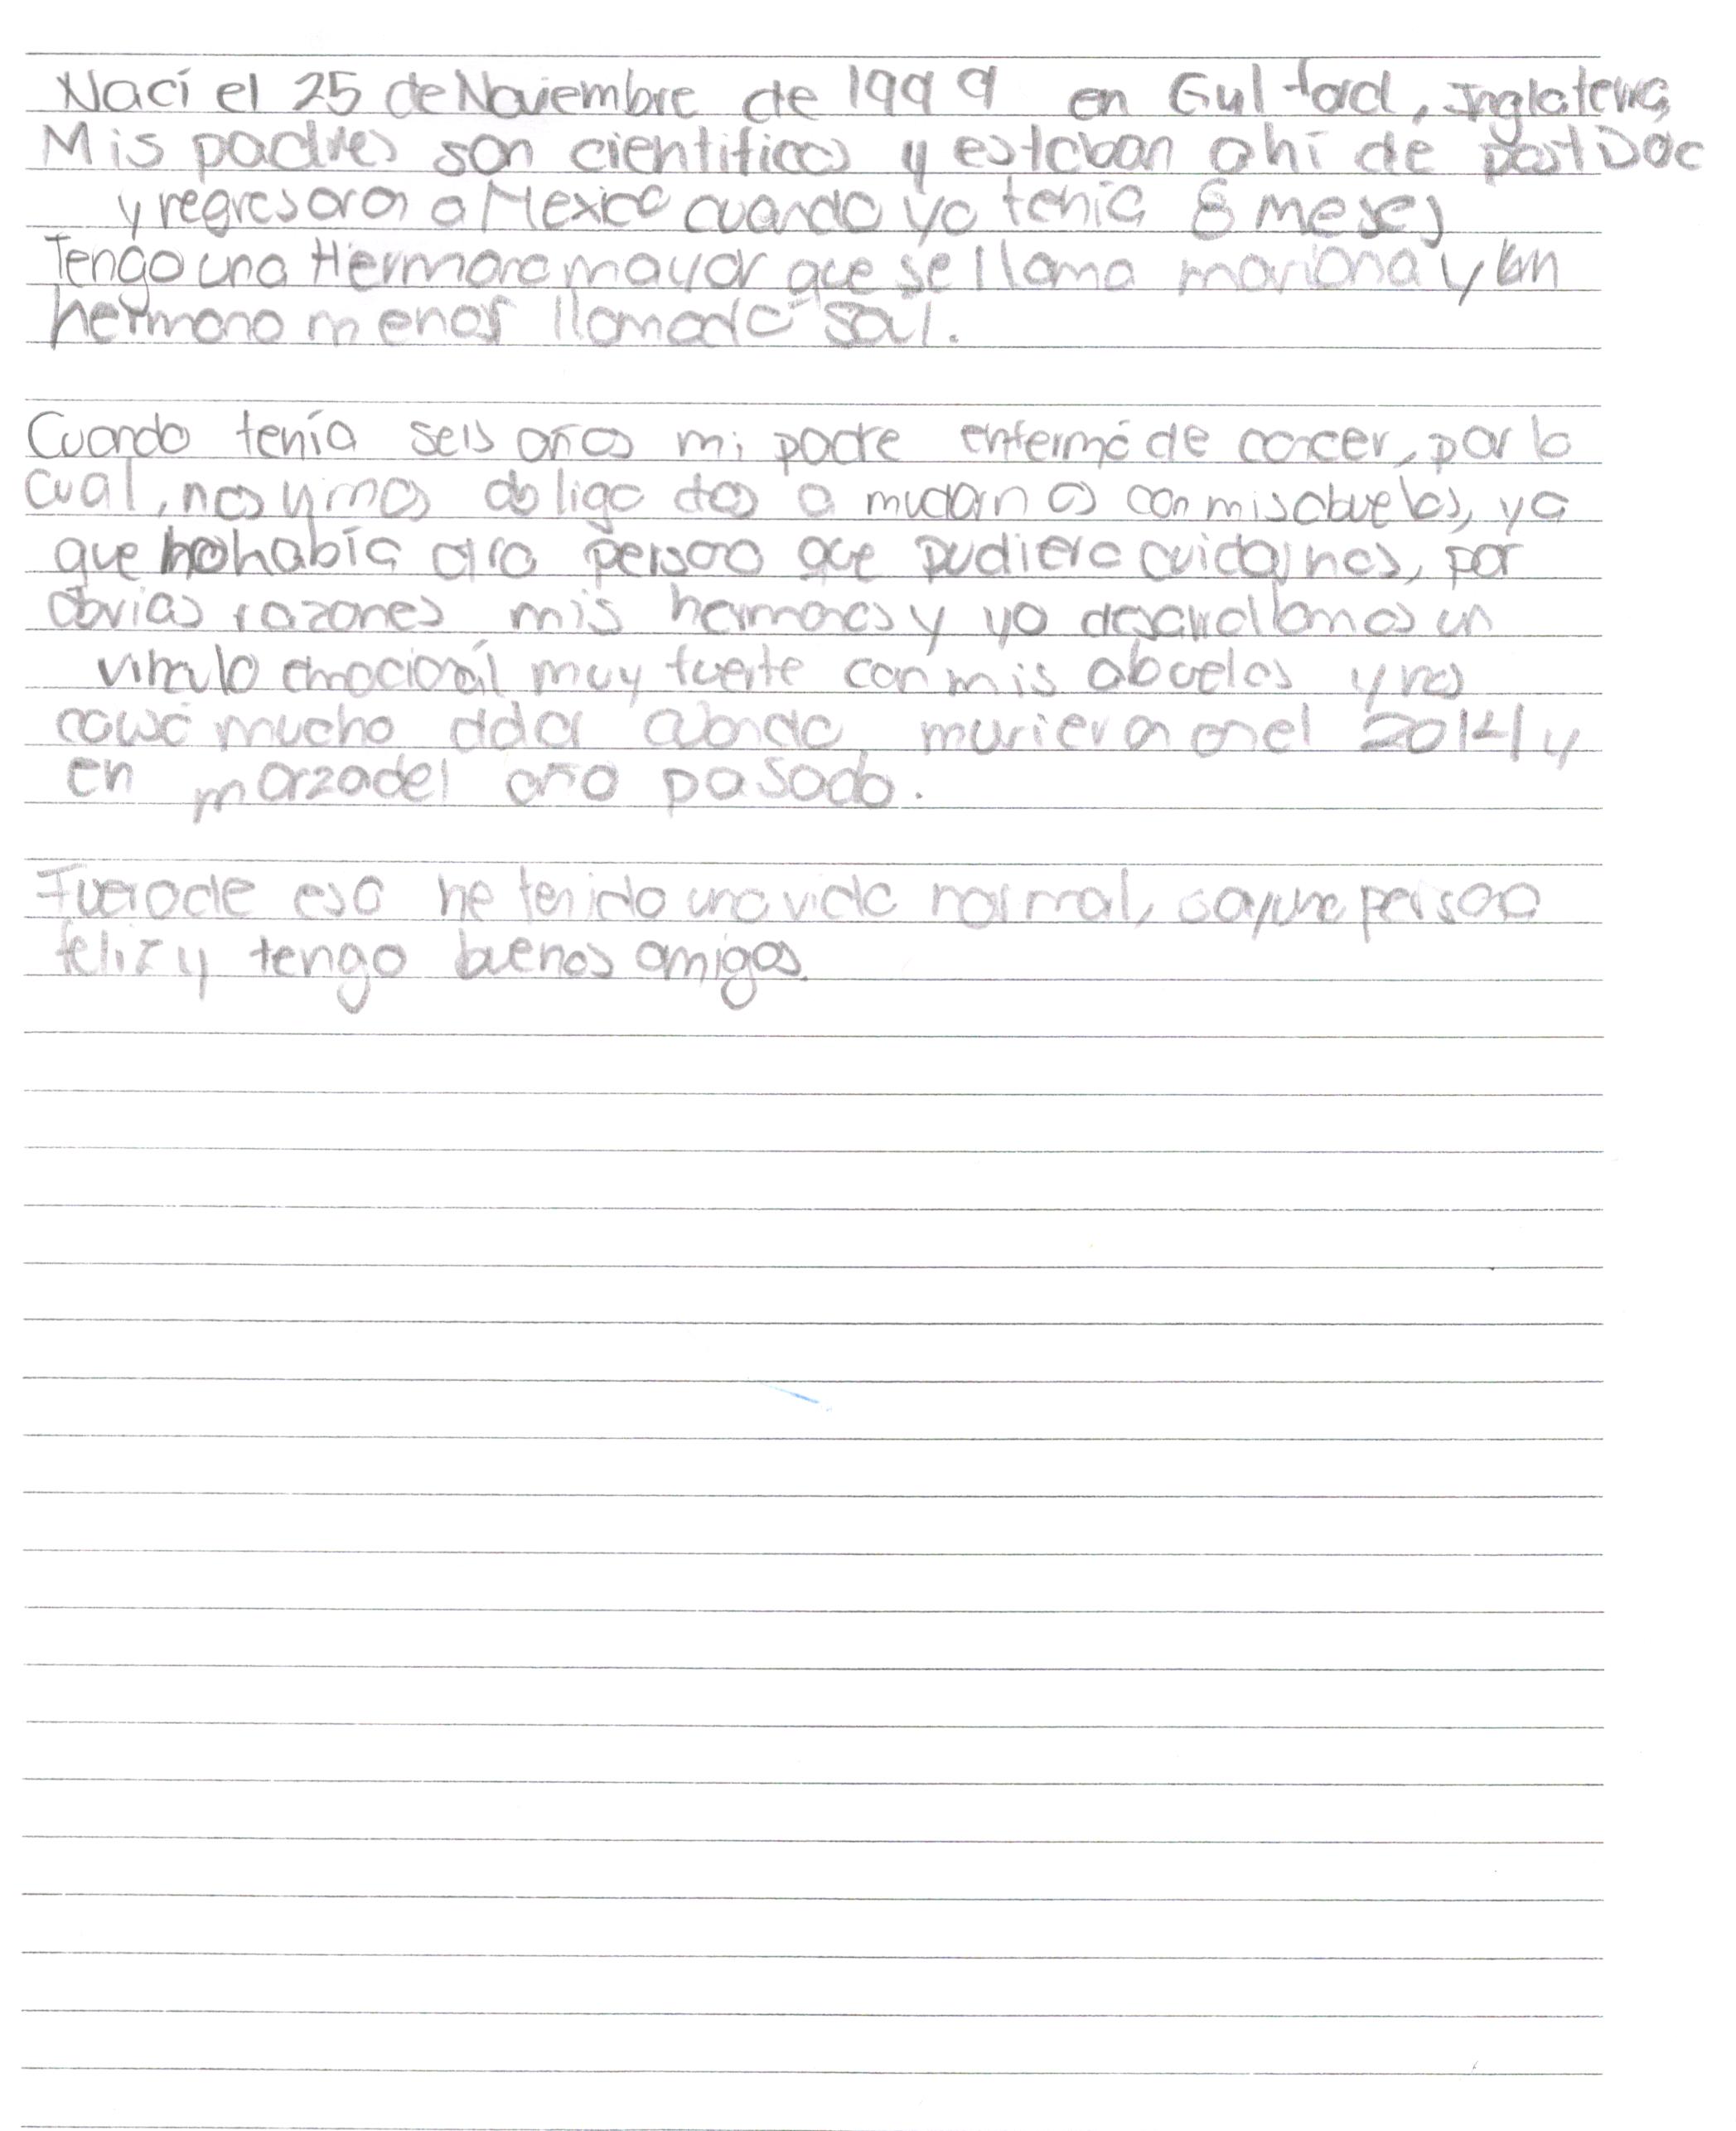 Nací el 25 de Noviembre de 1999 en Gulford, Inglaterra,
Mis padres son cientificos y estaban ahí de postDoc
y regresaron a Mexico cuando yo tenía 8 meses
Tengo una Hermana mayor que se llama mariana y un
hermano menor llamado Saul.
Cuando tenía seis años mi padre enfermó de cancer, por lo
cual, nos vimos obligados a mudarnos con mis abuelos, ya
que no había otra persona que pudiera cuidarnos, por
obvias razones mis hermanos y yo desarrollamos un
vinculo emocional muy fuerte con mis abuelos y nos
causó mucho dolor cuando murieron en el 2014 y
en marzo del año pasado.
Fuera de eso he tenido una vida normal, soy una persona
feliz y tengo buenos amigos.